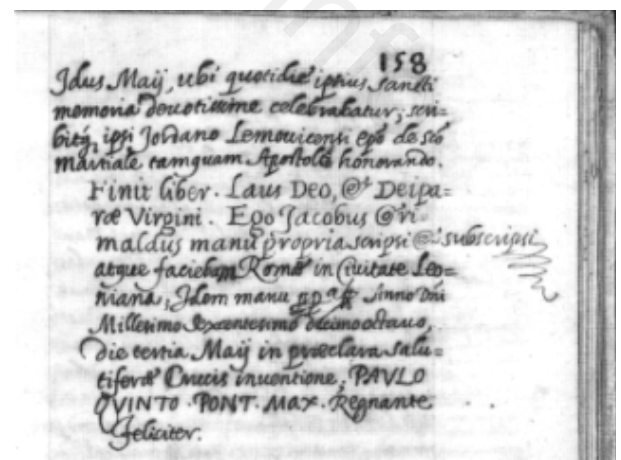 158
Idus Maij, ubi quotidie ipsius sancti
memoria deuotissime celebrabatur; scri=
bitq, ipsi Jordano Lemouicensi epō de Sto
Martiale tamquam Apostolo honorando.
Finit liber. Laus Deo, & Deipa=
ræ Virgini. Ego Jacobus Gri=
maldus manu propria scripsi & subscripsi
atque faciebam Romæ in Ciuitate Leo=
niana, Idem manu ppa Anno Dni
Millesimo sexcentesimo decimooctauo,
die tertia Maij in præclara salu=
tiferæ Crucis inuentione, PAVLO
QVINTO PONT. MAX. Regnante
Feliciter.